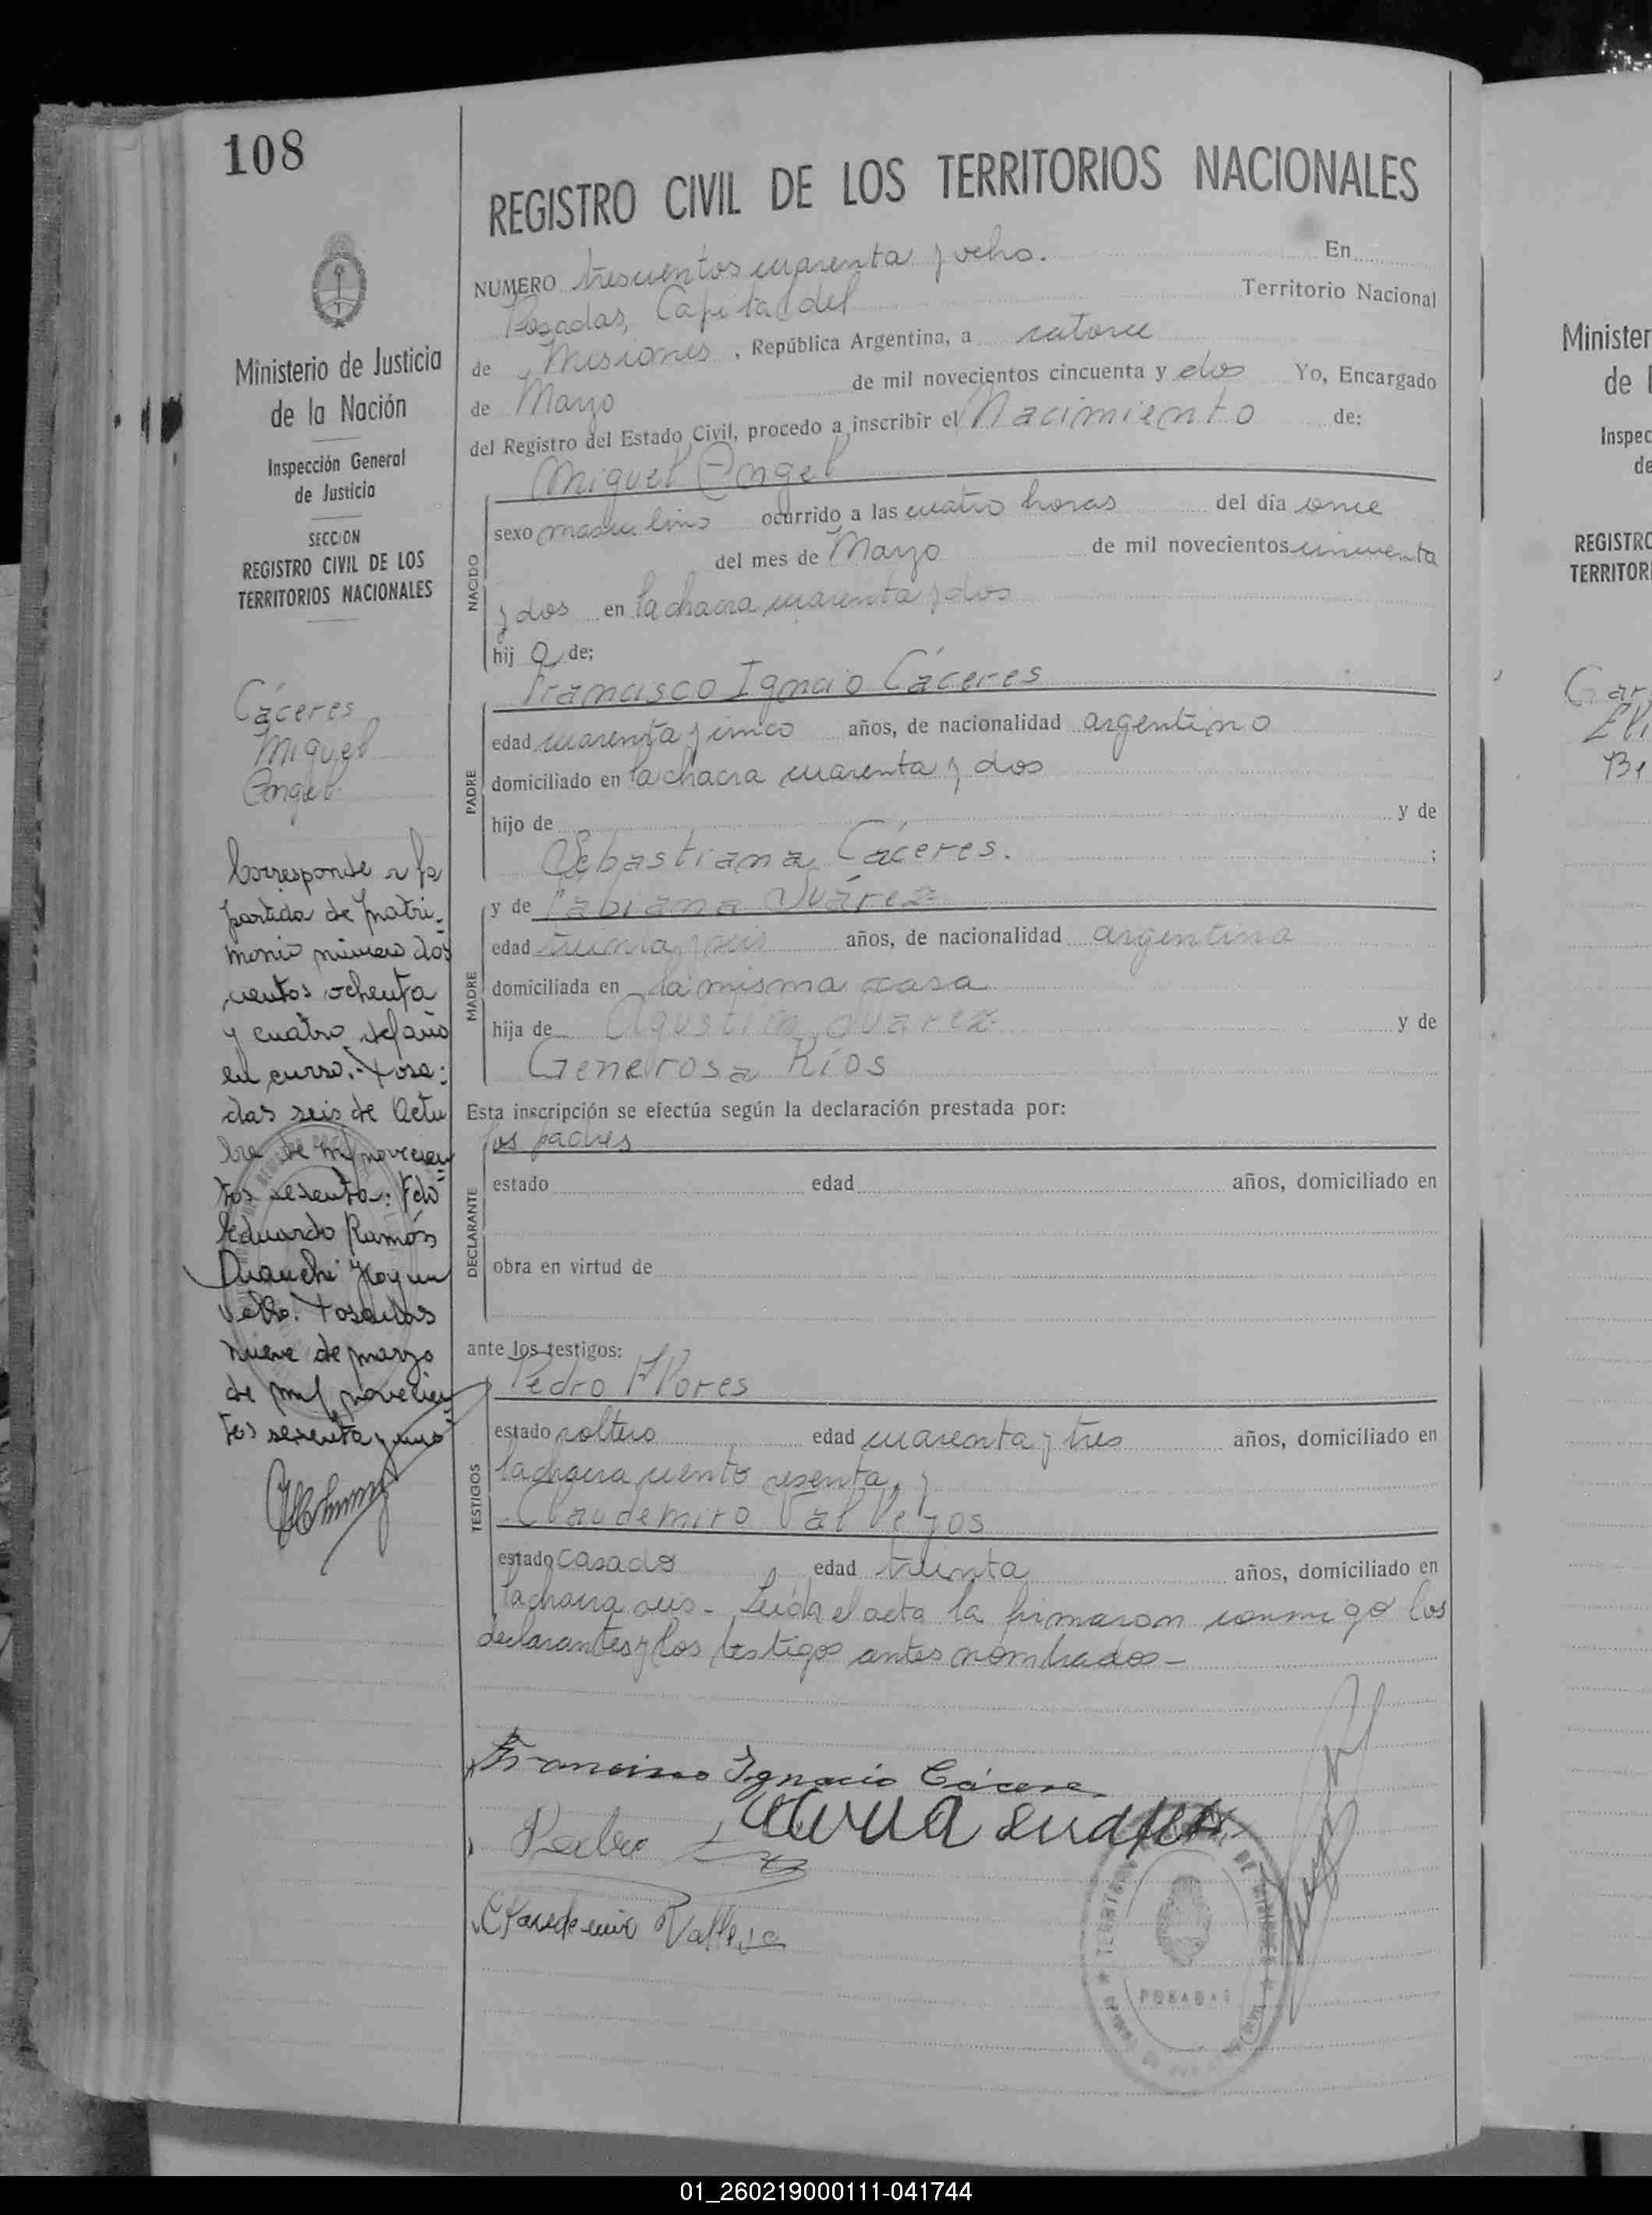 108
Ministerio de Justicia
de la Nación
Inspección General
de Justicia
SECCION
REGISTRO CIVIL DE LOS
TERRITORIOS NACIONALES
Cáceres
Miguel
Angel
Corresponde a la
partida de matri-
monio número dos
cientos ochenta
y cuatro del año
en curso.- Posa-
das seis de Octu
bre de mil novecien
tos sesenta: Fdo
Eduardo Ramón
Hay un
sello. Posadas
nueve de marzo
de mil novecien
tos sesenta y uno
REGISTRO CIVIL DE LOS TERRITORIOS NACIONALES
NUMERO trescientos cuarenta y ocho. En
Posadas, Capital del Territorio Nacional
de Misiones, República Argentina, a catorce
de Marzo de mil novecientos cincuenta y dos Yo, Encargado
del Registro del Estado Civil, procedo a inscribir el Nacimiento de:
Miguel Angel
NACIDO
sexo masculino ocurrido a las cuatro horas del día once
del mes de Marzo de mil novecientos cincuenta
y dos en la chacra cuarenta y dos
hij o de:
Francisco Ignacio Cáceres
PADRE
edad cuarenta y cinco años, de nacionalidad argentino
domiciliado en la chacra cuarenta y dos
hijo de y de
Sebastiana Cáceres. ;
y de Fabiana Suárez
MADRE
edad treinta y seis años, de nacionalidad argentina
domiciliada en la misma casa
hija de Agustín Suarez y de
Generosa Ríos
Esta inscripción se efectúa según la declaración prestada por:
los padres
DECLARANTE
estado edad años, domiciliado en
obra en virtud de
ante los testigos:
Pedro Flores
TESTIGOS
estado soltero edad cuarenta y tres años, domiciliado en
la chacra ciento sesenta, y
Claudemiro Vallejos
estado casado edad treinta años, domiciliado en
la chacra seis - Leída el acta la firmaron conmigo los
declarantes y los testigos antes nombrados -
Francisco Ignacio Cácere
Suares
Pedro
Claudemiro Vallejo
POSADAS
Minister
de l
Inspec
de
REGISTRO
TERRITOR
Gar
Eli
Be
01_260219000111-041744